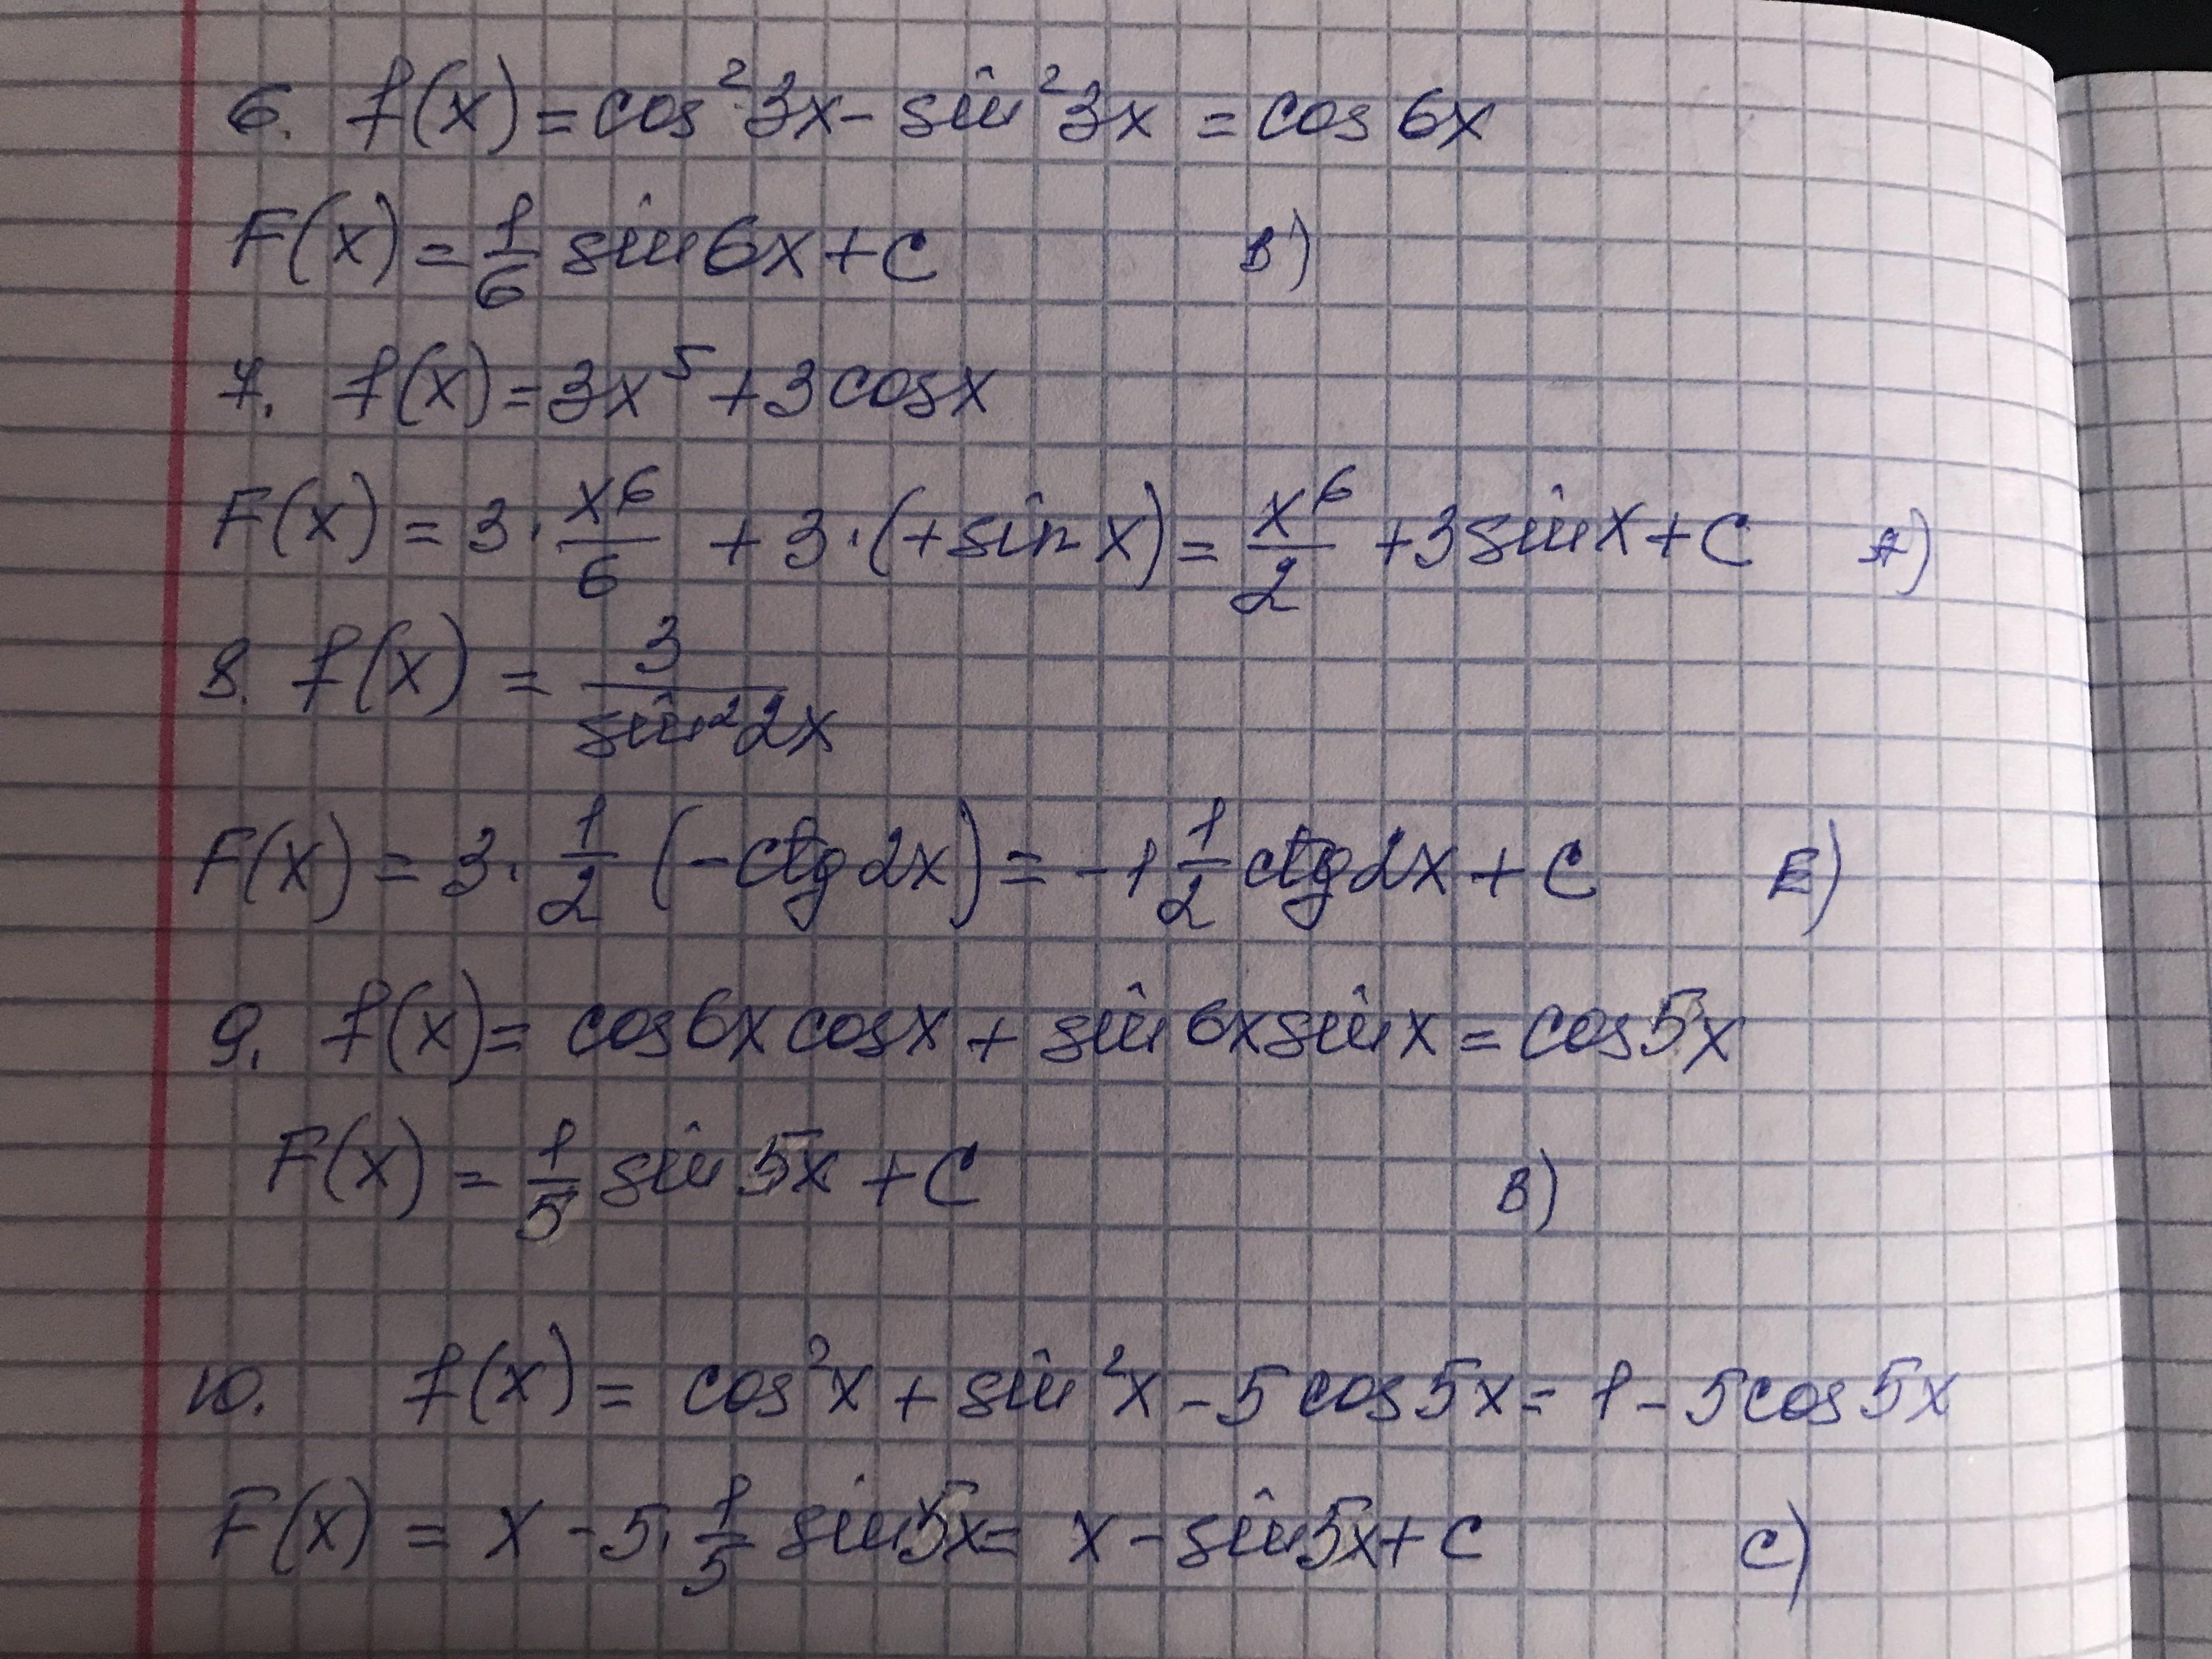 6. f(x) = cos²3x - sin²3x = cos 6x
F(x) = 1/6 sin 6x + C B)
7. f(x) = 3x⁵ + 3cosx
F(x) = 3 · x⁶/6 + 3 · (+sin x) = x⁶/2 + 3sinx + C A)
8. f(x) = 3/sin²2x
F(x) = 3 · 1/2 (-ctg 2x) = -1 1/2 ctg 2x + C E)
9. f(x) = cos6x cosx + sin 6x sin x = cos 5x
F(x) = 1/5 sin 5x + C B)
10. f(x) = cos²x + sin²x - 5 cos 5x = 1 - 5cos 5x
F(x) = x - 5 · 1/5 sin5x = x - sin5x + C C)